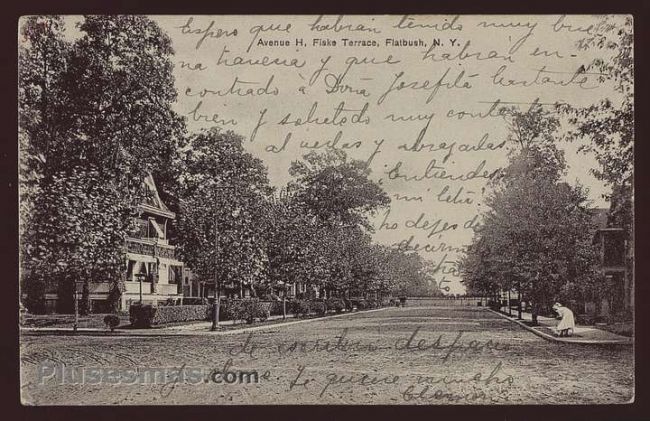 Espero que habran tenido muy bue
Avenue H, Fiske Terrace, Flatbush, N. Y.
na travesia y que habrán en-
contrado á Doña Josefita bastante
bien y saludado muy contenta
al verlas y abrazadas
mi letra
no dejes de
decirme
de escribir despacio
Te quiere mucho
Plusesmas.com